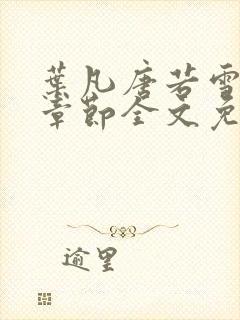 葉凡唐若雪
章節全文免
逾里